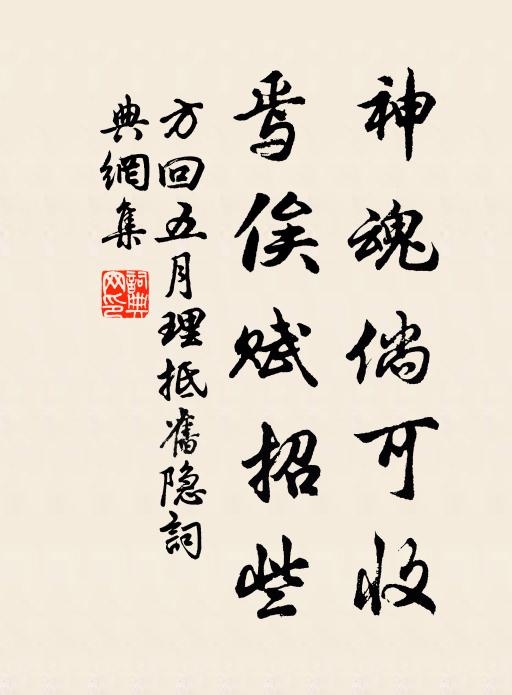 神魂倘可收
焉俟赋招些
方回五月理抵舊隐詞
典網集
詞典網印